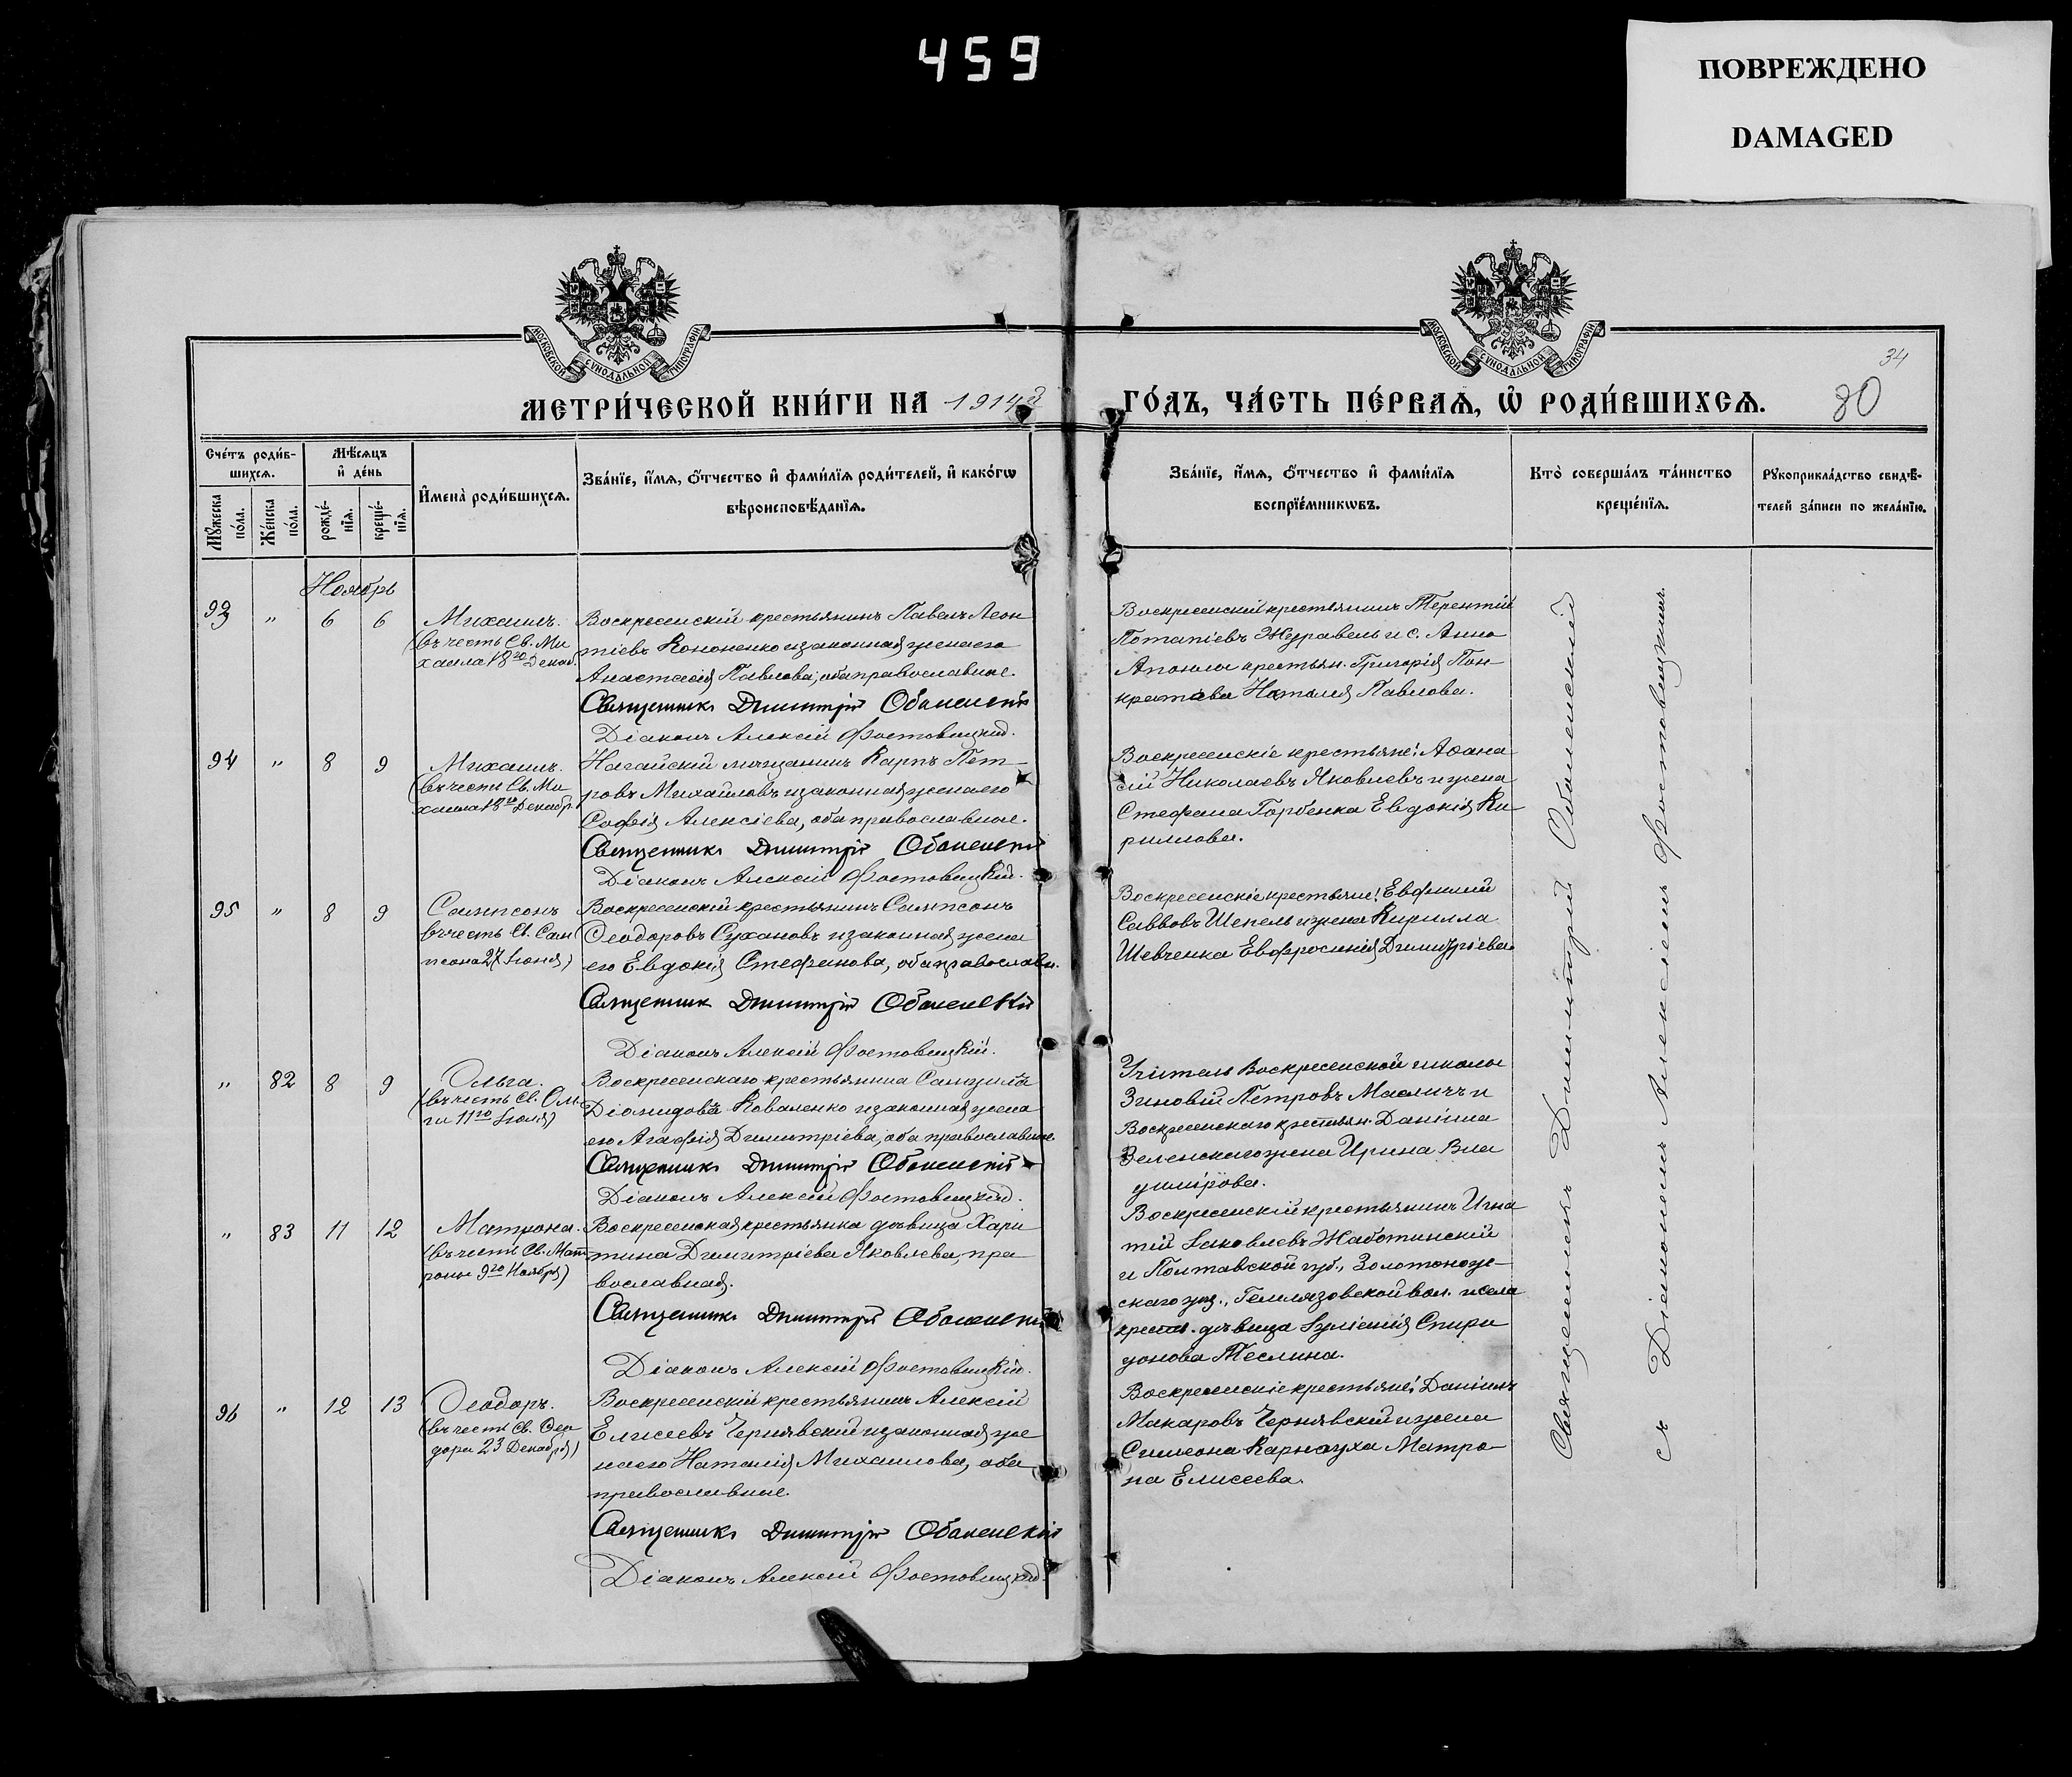 459
ПОВРЕЖДЕНО
DAMAGED
МОСКОВСКОЙ СѴНОДАЛЬНОЙ ТИПОГРАФІИ
МОСКОВСКОЙ СѴНОДАЛЬНОЙ ТИПОГРАФІИ
34
МЕТРИ́ЧЕСКОЙ КНИ́ГИ НА 1914й
ГО́ДЪ, ЧА́СТЬ ПЕ́РВАѦ, Ѡ РОДИ́ВШИХСѦ. 80
Сче́тъ роди́в-
шихсѧ.
Мѣ́сѧцъ
и҆ де́нь
Мꙋ́жеска
по́ла.
Же́нска
по́ла.
рожде́-
нїѧ.
креще́-
нїѧ.
И҆мена̀ роди́вшихсѧ.
Зва́нїе, и҆́мѧ, ѻ҆́тчество и҆ фами́лїѧ роди́телей, и҆ како́гѡ
вѣроисповѣ́данїѧ.
Зва́нїе, и҆́мѧ, ѻ҆́тчество и҆ фами́лїѧ
воспрїе́мникѡвъ.
Кто̀ соверша́лъ та́инство
креще́нїѧ.
Рꙋкоприкла́дство свидѣ́-
телей за́писи по жела́нїю.
Ноябрь
93 " 6 6 Михаилъ.
(въ честь Св. Ми
хаила 18го Декаб.
Воскресенскій крестьянинъ Павелъ Леон
тіевъ Кононенко и законная жена его
Анастасія Павлова, оба православные.
Священникъ Димитрій Обаненскій
Діаконъ Алексій Фостовицкій.
Воскресенскій крестьянинъ Терентій
Потапіевъ Журавель и с. Анно
Аполлы крестьян. Григорія Пон
кратова Наталія Павлова.
94 " 8 9 Михаилъ.
(въ честь Св. Ми
хаила 18го Декабр.
Ногайскій мѣщанинъ Карпъ Пет
ровъ Михайловъ и законная жена его
Софія Алексіева, оба православные.
Священникъ Димитрій Обаненскій
Діаконъ Алексій Фостовицкій.
Воскресенскіе крестьяне: Афана
сій Николаевъ Яковлевъ и жена
Стефана Горбенка Евдокія Ки
риллова.
95 " 8 9 Сампсонъ
(въ честь Св. Сам
псона 27 Іюня)
Воскресенскій крестьянинъ Сампсонъ
Ѳеодоровъ Сухановъ и законная жена
его Евдокія Стефанова, оба православн.
Священникъ Димитрій Обаненскій
Діаконъ Алексій Фостовицкій.
Воскресенскіе крестьяне: Евфимій
Саввовъ Шепель и жена Кирилла
Шевченка Евфросинія Димитріева
" 82 8 9 Ольга.
(въ честь Св. Оль
ги 11го Іюля)
Воскресенскаго крестьянина Самуила
Діомидова Коваленко и законная жена
его Агафія Димитріева, оба православные.
Священникъ Димитрій Обаненскій
Діаконъ Алексій Фостовицкій.
Учитель Воскресенской школы
Зиновій Петровъ Масличъ и
Воскресенскаго крестьян. Даніила
Зеленскаго жена Ирина Вла
димірова.
" 83 11 12 Матрона.
(въ честь Св. Мат
роны 9го Ноября)
Воскресенская крестьянка дѣвица Хари
тина Димитріева Яковлева, пра
вославная.
Священникъ Димитрій Обаненскій
Діаконъ Алексій Фостовицкій.
Воскресенскій крестьянинъ Игна
тій Іаковлевъ Жаботинскій
и Полтавской губ., Золотонож-
скаго уѣз., Гельмязовской вол. и села
крестьян. дѣвица Іуліанія Спири
донова Теслина.
96 " 12 13 Ѳеодоръ.
(въ честь Св. Ѳео
дора 23 Декабря)
Воскресенскій крестьянинъ Алексій
Елисеевъ Чернявскій и законная же
на его Наталія Михаилова, оба
православные.
Священникъ Димитрій Обаненскій
Діаконъ Алексій Фостовицкій.
Воскресенскіе крестьяне: Даніилъ
Макаровъ Чернявскій и жена
Симеона Карнауха Матро-
на Елисеева.
Священникъ Димитрій Обаненскій
съ Діакономъ Алексіемъ Фостовицкимъ.